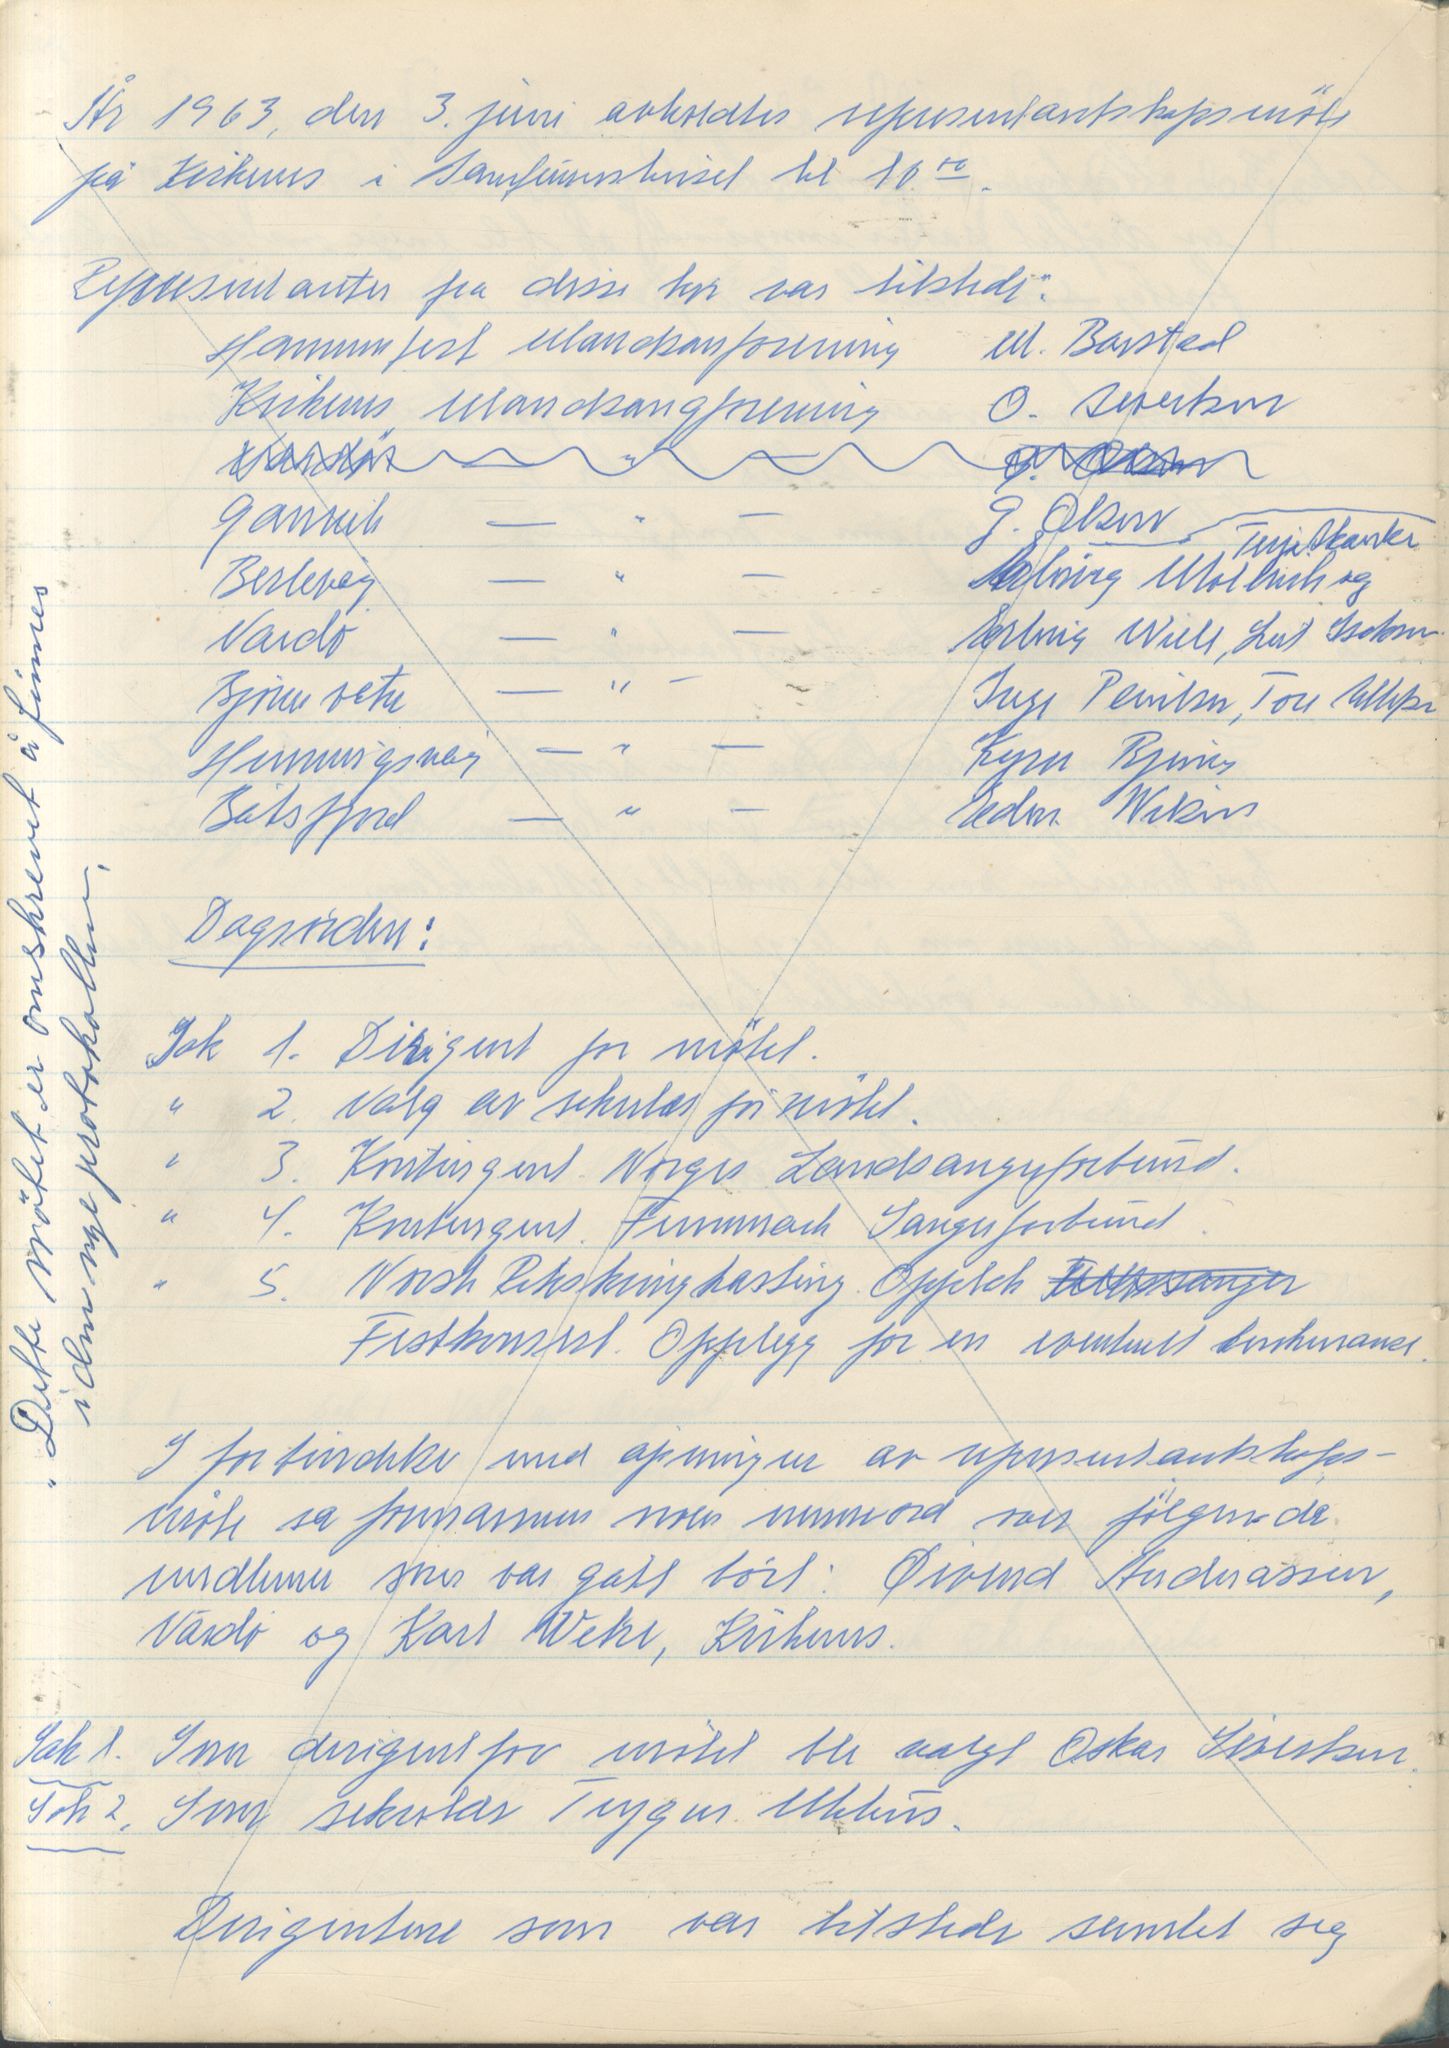 År 1963, den 3. juni avholdtes representantskapsmöte
på Kirkenes i Samfunnshuset kl 10.00.
Representanter fra disse kor var tilstede:
Hammerfest Mandsangforening M. Barstad
Kirkenes Mandsangforening O. Sivertsen
Vardö — " — O. Olsen
Gamvik — " — G. Olsen
Terje Skanke
Berlevåg — " — og
Vardö — " — Erling
Bjørnevatn — " — Inge Tore
Honningsvåg — " —
Båtsfjord — " —
Dagsorden:
Sak 1. Dirigent for mötet.
" 2. Valg av sekretær for mötet.
" 3. Kontingent Norges Landsangerforbund.
" 4. Kontingent. Finnmark Sangerforbund.
" 5. Norsk Rikskringkasting. Opptak
Festkonsert. Opplegg for en eventuell konkurranse.
I forbindelse med åpningen av representantskaps-
möte sa formannen noen minneord over fölgende
medlemmer som var gått bort: Øivind Andreassen,
Vardö og Karl Kirkenes.
Sak 1. Som dirigent for mötet ble valgt Oskar Sivertsen.
Sak 2. Som sekretær Trygve
Dirigentene som var tilstede samlet seg
"Dette mötet er omskrevet å finnes
i den nye protokollen.